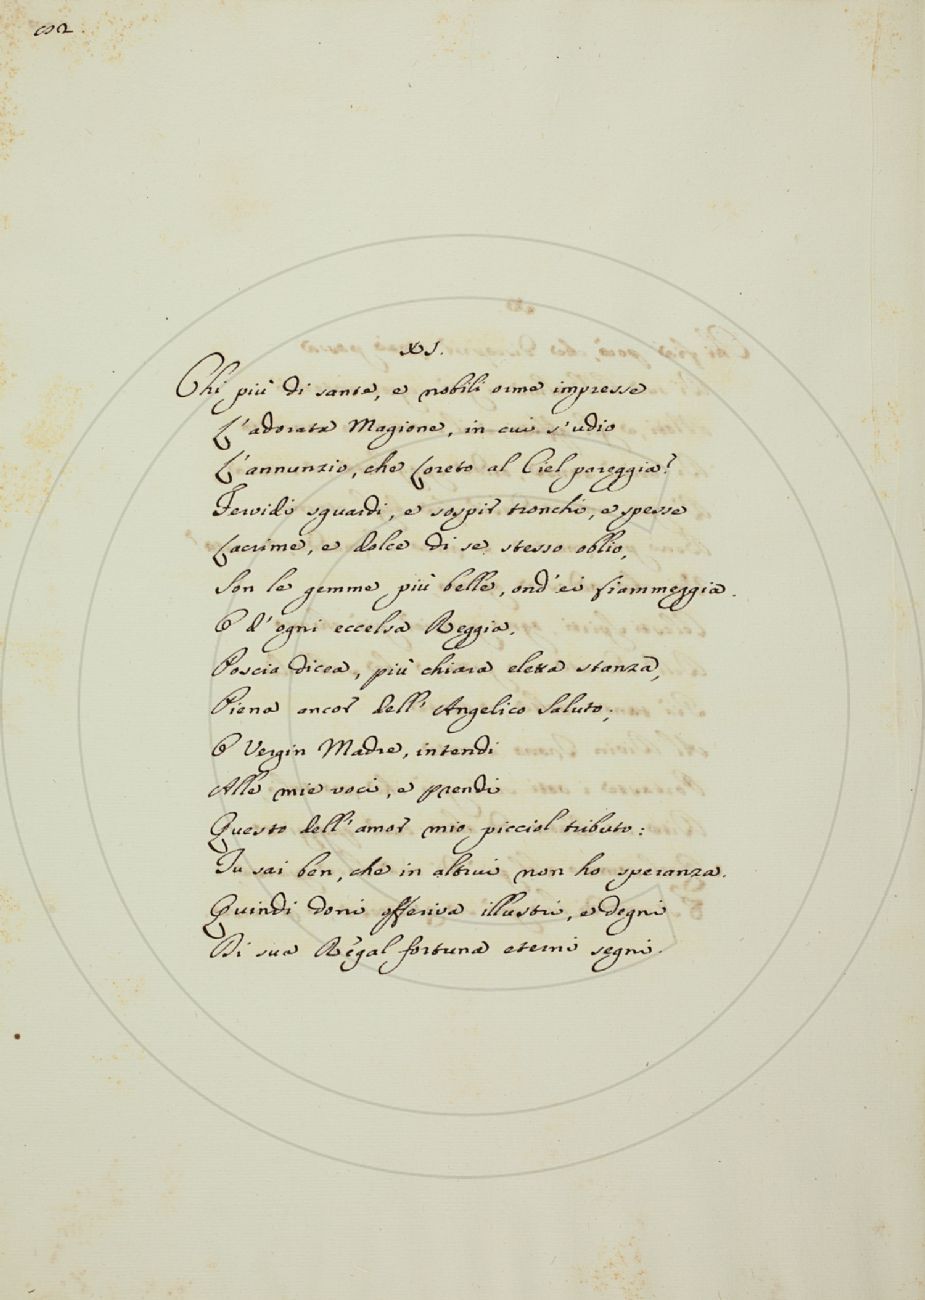 XI.
Chi più di sante, e nobili orme impresse
L'adorata Magione, in cui s'udio
L'annunzio, che Loreto al Ciel pareggia?
Fervidi sguardi, e sospir tronchi, e spesse
Lacrime, e dolce di se stesso oblio,
Son le gemme più belle, ond'ei fiammeggia.
O d'ogni eccelsa Reggia,
Poscia dicea, più chiara eletta stanza,
Piena ancor dell'Angelico Saluto;
O Vergin Madre, intendi
Alle mie voci, e prendi
Questo dell'amor mio picciol tributo:
Tu sai ben, che in altrui non ho speranza.
Quindi doni offeriva illustri, e degni
Di sua Regal fortuna eterni segni.